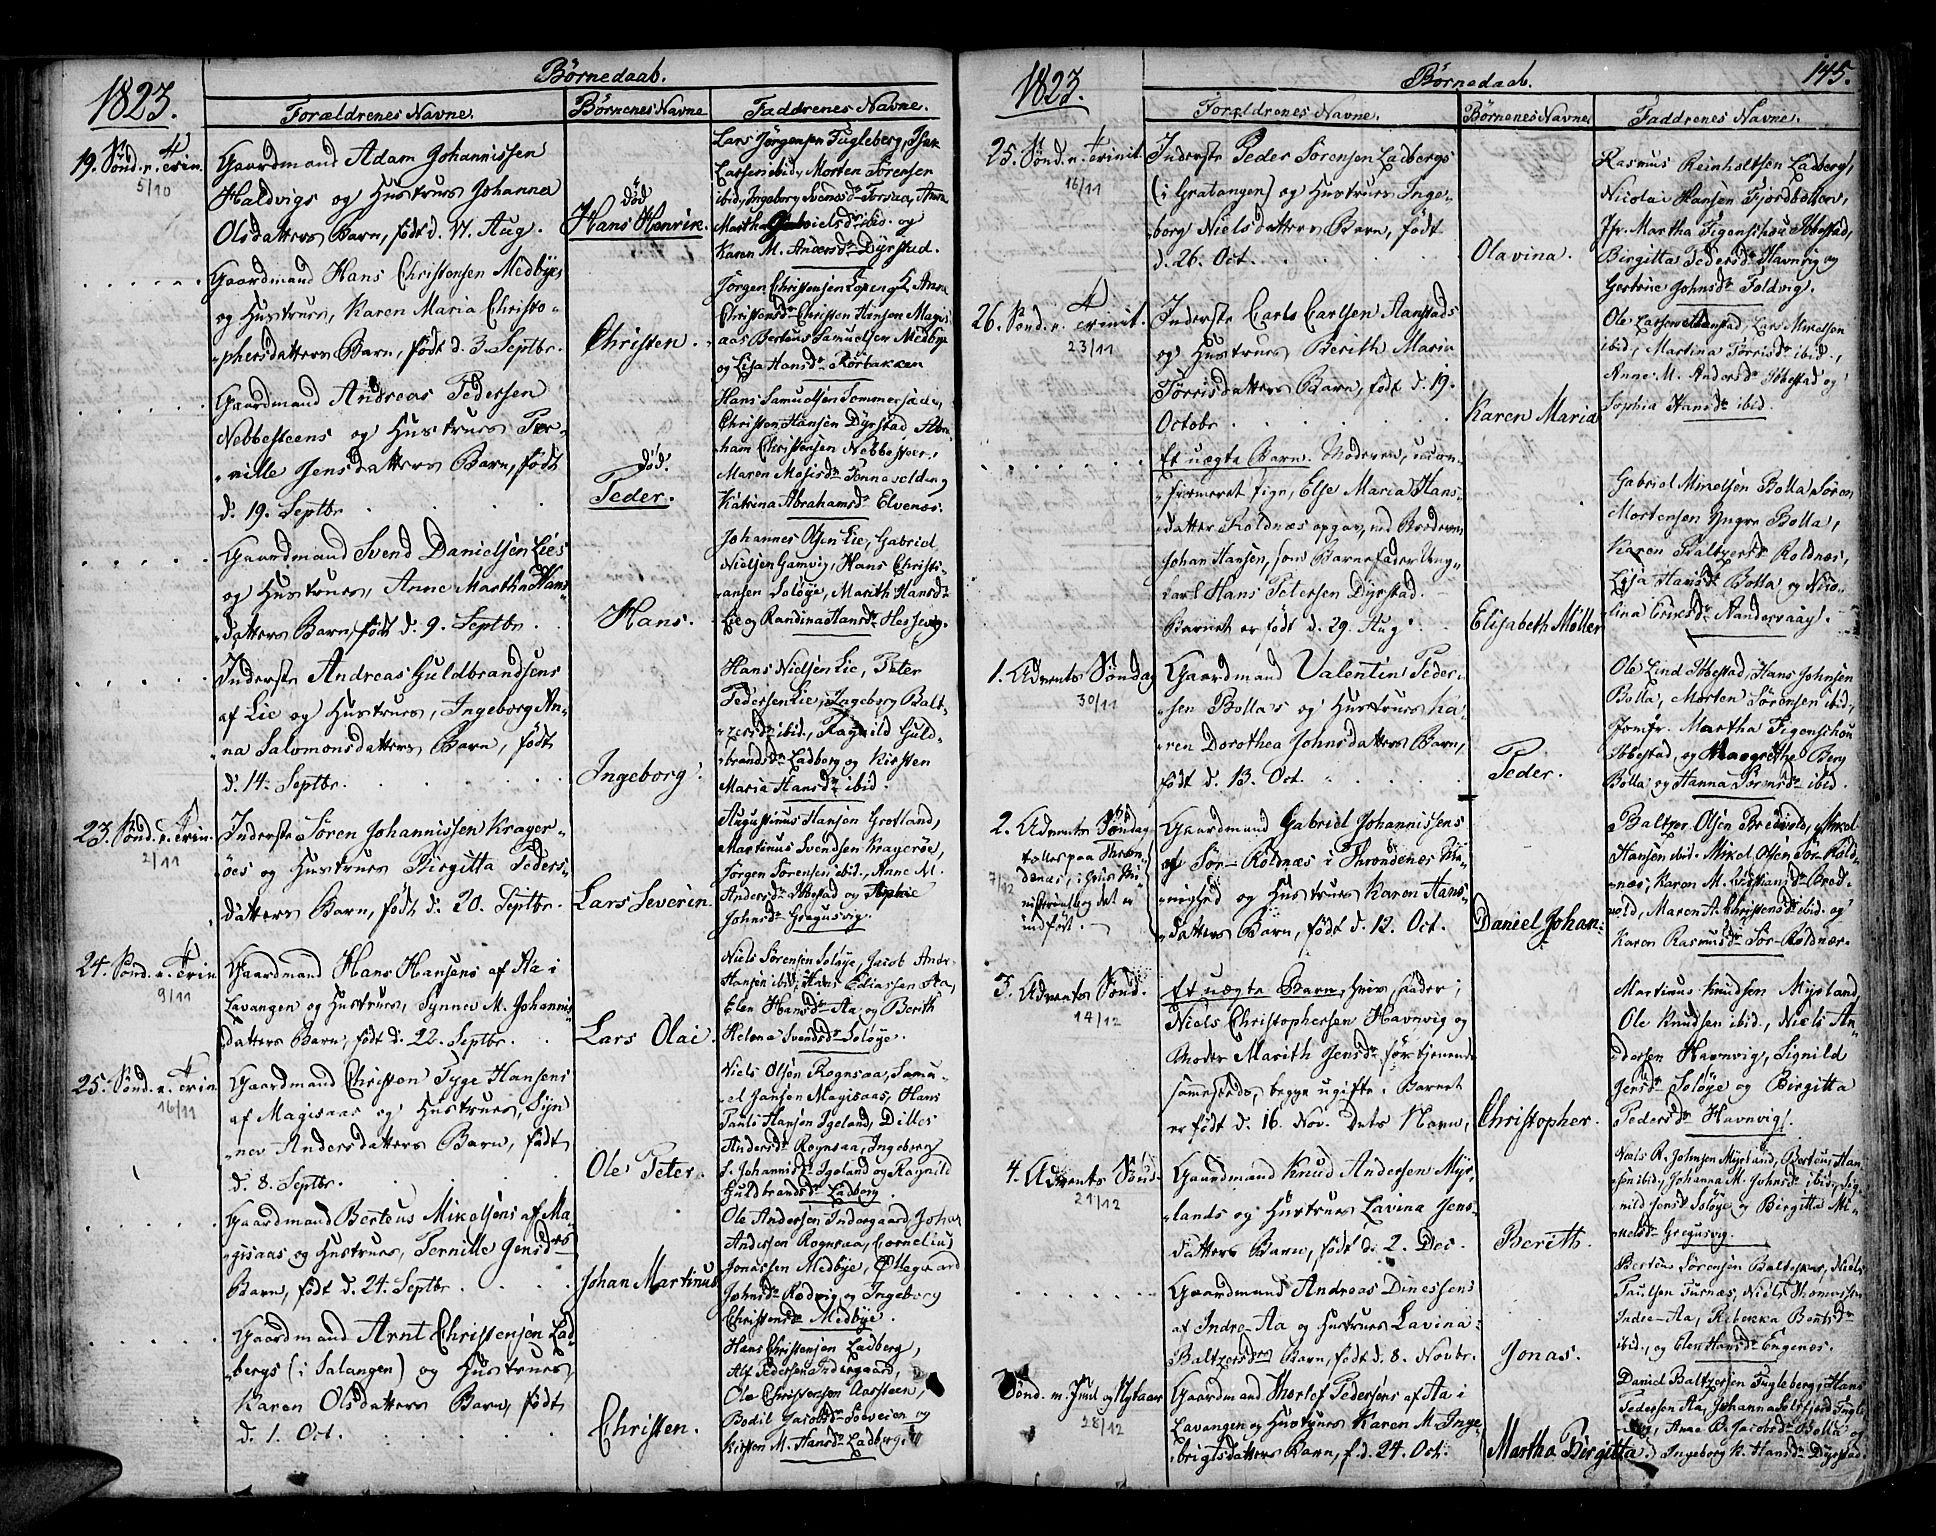 1823.
Børnedaab.
Forældrenes Navne.
Børnenes Navne
Faddrenes Navne.
19. Sønd. e. Trin.
5/10
Gaardmand Adam Johannissen
Haldvigs og Hustrues Johanna
Olsdatters Barn, født d. 17. Aug.
død
Hans Henrik.
Lars Jørgensen Fugleberg, Isak
Larsen ibid, Morten Sørensen
ibid, Ingeborg Svensdr Forsaa,
Martha ibid. og
Karen M. Andersdr Dyrstad.
Gaardmand Hans Christensen Medbyes
og Hustrues, Karen Maria Christo-
phersdatters Barn, født d. 3. Septbr.
Christen.
Jørgen Christensen
Christensdr Christen Hansen Magis-
aas Berteus Samuelsen Medbye
og Lisa Hansdr Rørbakken
Gaardmand Andreas Pedersen
Nebbesteens og Hustrues Per-
nille Jensdatters Barn, født
d. 19. Septbr.
død.
Peder.
Hans Samuelsen Sommersæde,
Christen Hansen Dyrstad Abra-
ham Christensen Nebbesteen,
Maren Mosisdr Tennevolden og
Katrina Abrahamsdr Elvenæs.
Gaardmand Svend Danielsen Lies
og Hustrues, Anne Martha Hans-
datters Barn, født d. 9. Septbr.
Hans.
Johannes Olsen Lie, Gabriel
Nielsen Gamvig, Hans Christi-
ansen Soløye, Marith Hansdr
Lie og Randina Hansdr Hessevig.
Inderste Andreas Guldbrandsens
af Lie og Hustrues, Ingeborg An-
na Salomonsdatters Barn, født
d. 14. Septbr.
Ingeborg.
Hans Nielsen Lie, Peter
Pedersen Lie, Ingeborg Balt-
zersdr ibid., Ragnild Guld-
brandsdr Ladberg og Kirsten
Maria Hansdr ibid.
23. Sønd. e. Trin.
2/11
Inderste Søren Johannissen Krager-
öes og Hustrues Birgitta Peders-
datters Barn, født d. 20. Septbr.
Lars Severin.
Augustinus Hansen Grotland,
Martinus Svendsen Kragerøe,
Jørgen Sørensen ibid., Anne M.
Andersdr Ibbestad og Sophie
Johnsdr Gregusvig.
24. Sønd. e. Trin
9/11
Gaardmand Hans Hansens af Aa i
Lavangen og Hustrues, Synnev M. Johannis-
datters Barn, født d. 22. Septbr.
Lars Olai.
Niels Sørensen Soløye, Jacob Andr.
Hansen ibid, Hans Eliassen Aa,
Elen Hansdr Aa, og Berith
Helena Svendsdr Soløye.
25. Sønd. e. Trin
16/11
Gaardmand Christen Tyge Hansens
af Magisaas og Hustrues, Syn-
nev Andersdatters Barn, født
d. 8. Septbr.
Ole Peter.
Niels Olsen Rognsaa, Samu-
el Jansen Magisaas, Hans
Paulo Hansen Igeland, Dilles
Andersdr Rognsaa, Ingeborg
S. Johannisdr Igeland og Ragnild
Guldbrandsdr Ladberg.
Gaardmand Berteus Mikelsens af Ma-
gisaas og Hustrues, Pernille Jensdrs
Barn, født d. 24. Septbr.
Johan Martinus.
Ole Andersen Indergaard, Johan
Andersen Rognsaa, Cornelius
Jonassen Medbye, Ollegaard
Johnsdr Rodvig og Ingeborg
Christensdr Medbye.
Gaardmand Arnt Christensen Lad-
bergs (i Salangen) og Hustrues
Karen Olsdatters Barn, født
d. 1. Oct.
Christen.
Hans Christensen Ladberg,
Alf Pedersen Indergaard,
Ole Christensen Aarsteen,
Bodil Jacobsdr Soeveien og
Kirsten M. Hansdr Ladberg.
1823.
Børnedaab.
145.
Forældrenes Navne.
Børnenes Navne
Faddrenes Navne.
25. Sønd. e. Trinit.
16/11
Inderste Peder Sørensen Ladbergs
(i Gratangen) og Hustrues Inge-
borg Nielsdatters Barn, født
d. 26. Oct.
Olavina.
Rasmus Reinholtsen Ladberg,
Nicolai Hansen Fjordbotten,
Jfr. Martha Figenschou Ibbestad,
Birgitta Pedersdr Havnvig og
Gertrue Johnsdr Foldvig.
26. Sønd. e. Trinit.
23/11
Inderste Carls Carlsen Hanstads
og Hustrues Berith Maria
Tørrisdatters Barn, født d. 19.
Octobr.
Karen Maria
Ole Larsen Hamstad, Lars Mikelsen
ibid, Martina Tørrisdr ibid.,
Anne M. Andersdr Ibbestad og
Sophia Hansdr ibid.
Et uægte Barn. Moderen, ucon-
firmeret Pige, Else Maria Hans-
datter Roldnæs opgav, ved Broderen
Johan Hansen, som Barnefader Ung-
karl Hans Petersen Dyrstad.
Barnet er født d. 29. Aug.
Elisabeth Møller
Gabriel Mikelsen Bolla Søren
Mortensen Yngre Bolla,
Karen Baltzersdr Roldnæs,
Lisa Hansdr Bolla og Nico-
lina Eriksdr Sandersaay.
1. Advents Søndag
30/11
Gaardmand Valentin Peder-
sen Bolla's og Hustrues Ka-
ren Dorothea Johnsdatters Barn,
født d. 13. Oct.
Peder.
Ole Lind Ibbestad, Hans Johnsen
Bolla, Morten Sørensen ibid,
Jomfr. Martha Figenschou
Ibbestad, og Margrethe Berg
Bolla og Hanna Sørensdr ibid.
2. Advents Søndag
7/12
Gaardmand Gabriel Johannissens
af Sør-Roldnæs i Throndenes Me-
nighed og Hustrues Karen Hans-
datters Barn, født d. 12. Oct.
Daniel Johan.
Baltzer Olsen Bredvold, Mikel
Hansen ibid. Mikel Olsen Sør-Rold-
næs, Karen M. Christiansdr Bred-
vold, Maren A. Christensdr ibid. og
Karen Rasmusdr Sør-Roldnæs.
3. Advents Sønd.
14/12
Et uægte Barn, hvis Fader,
Niels Christophersen Havnvig og
Moder Marith Jensdr før tjenende
sammesteds, begge ugifte. Barnet
er født d. 16. Nov. Dets Navn,
Christopher.
Martinus Knudsen Myrland,
Ole Knudsen ibid., Niels An-
dersen Havnvig, Signild
Jensdr Soløye og Birgitta
Pedersdr Havnvig.
4. Advents Sønd.
21/12
Gaardmand Knud Andersen Myr-
lands og Hustrues Lavina Jens-
datters Barn, født d. 2. Dec.
Berith.
Niels R. Johnsen Myrland, Berteus Han-
sen ibid., Johanna M. Johnsdr ibid., Sig-
nild Jensdr Soløye og Birgitta Mi-
kelsdr Gregusvig.
Gaardmand Andreas Dinessens
af Indre-Aa og Hustrues Lavina
Baltzersdrs Barn, født d. 8. Novbr.
Jonas.
Berteus Sørensen Balteskar, Niels
Paulsen Fursnæs, Niels Thomassen
Indre-Aa, Rebekka Bentsdr
ibid., og Elen Hansdr Engenæs.
Sønd. m. Juul og Nytaar
28/12
Gaardmand Thorlef Pedersens af Aa i
Lavangen og Hustrues Karen M. Inge-
brigtsdatters Barn, f. d. 24. Oct.
Martha Birgitta.
Daniel Baltzersen Fugleberg, Hans
Pedersen Aa, Johanna
Anne B. Jacobsdr Bolla og
Ingeborg K. Hansdr Dyrstad.